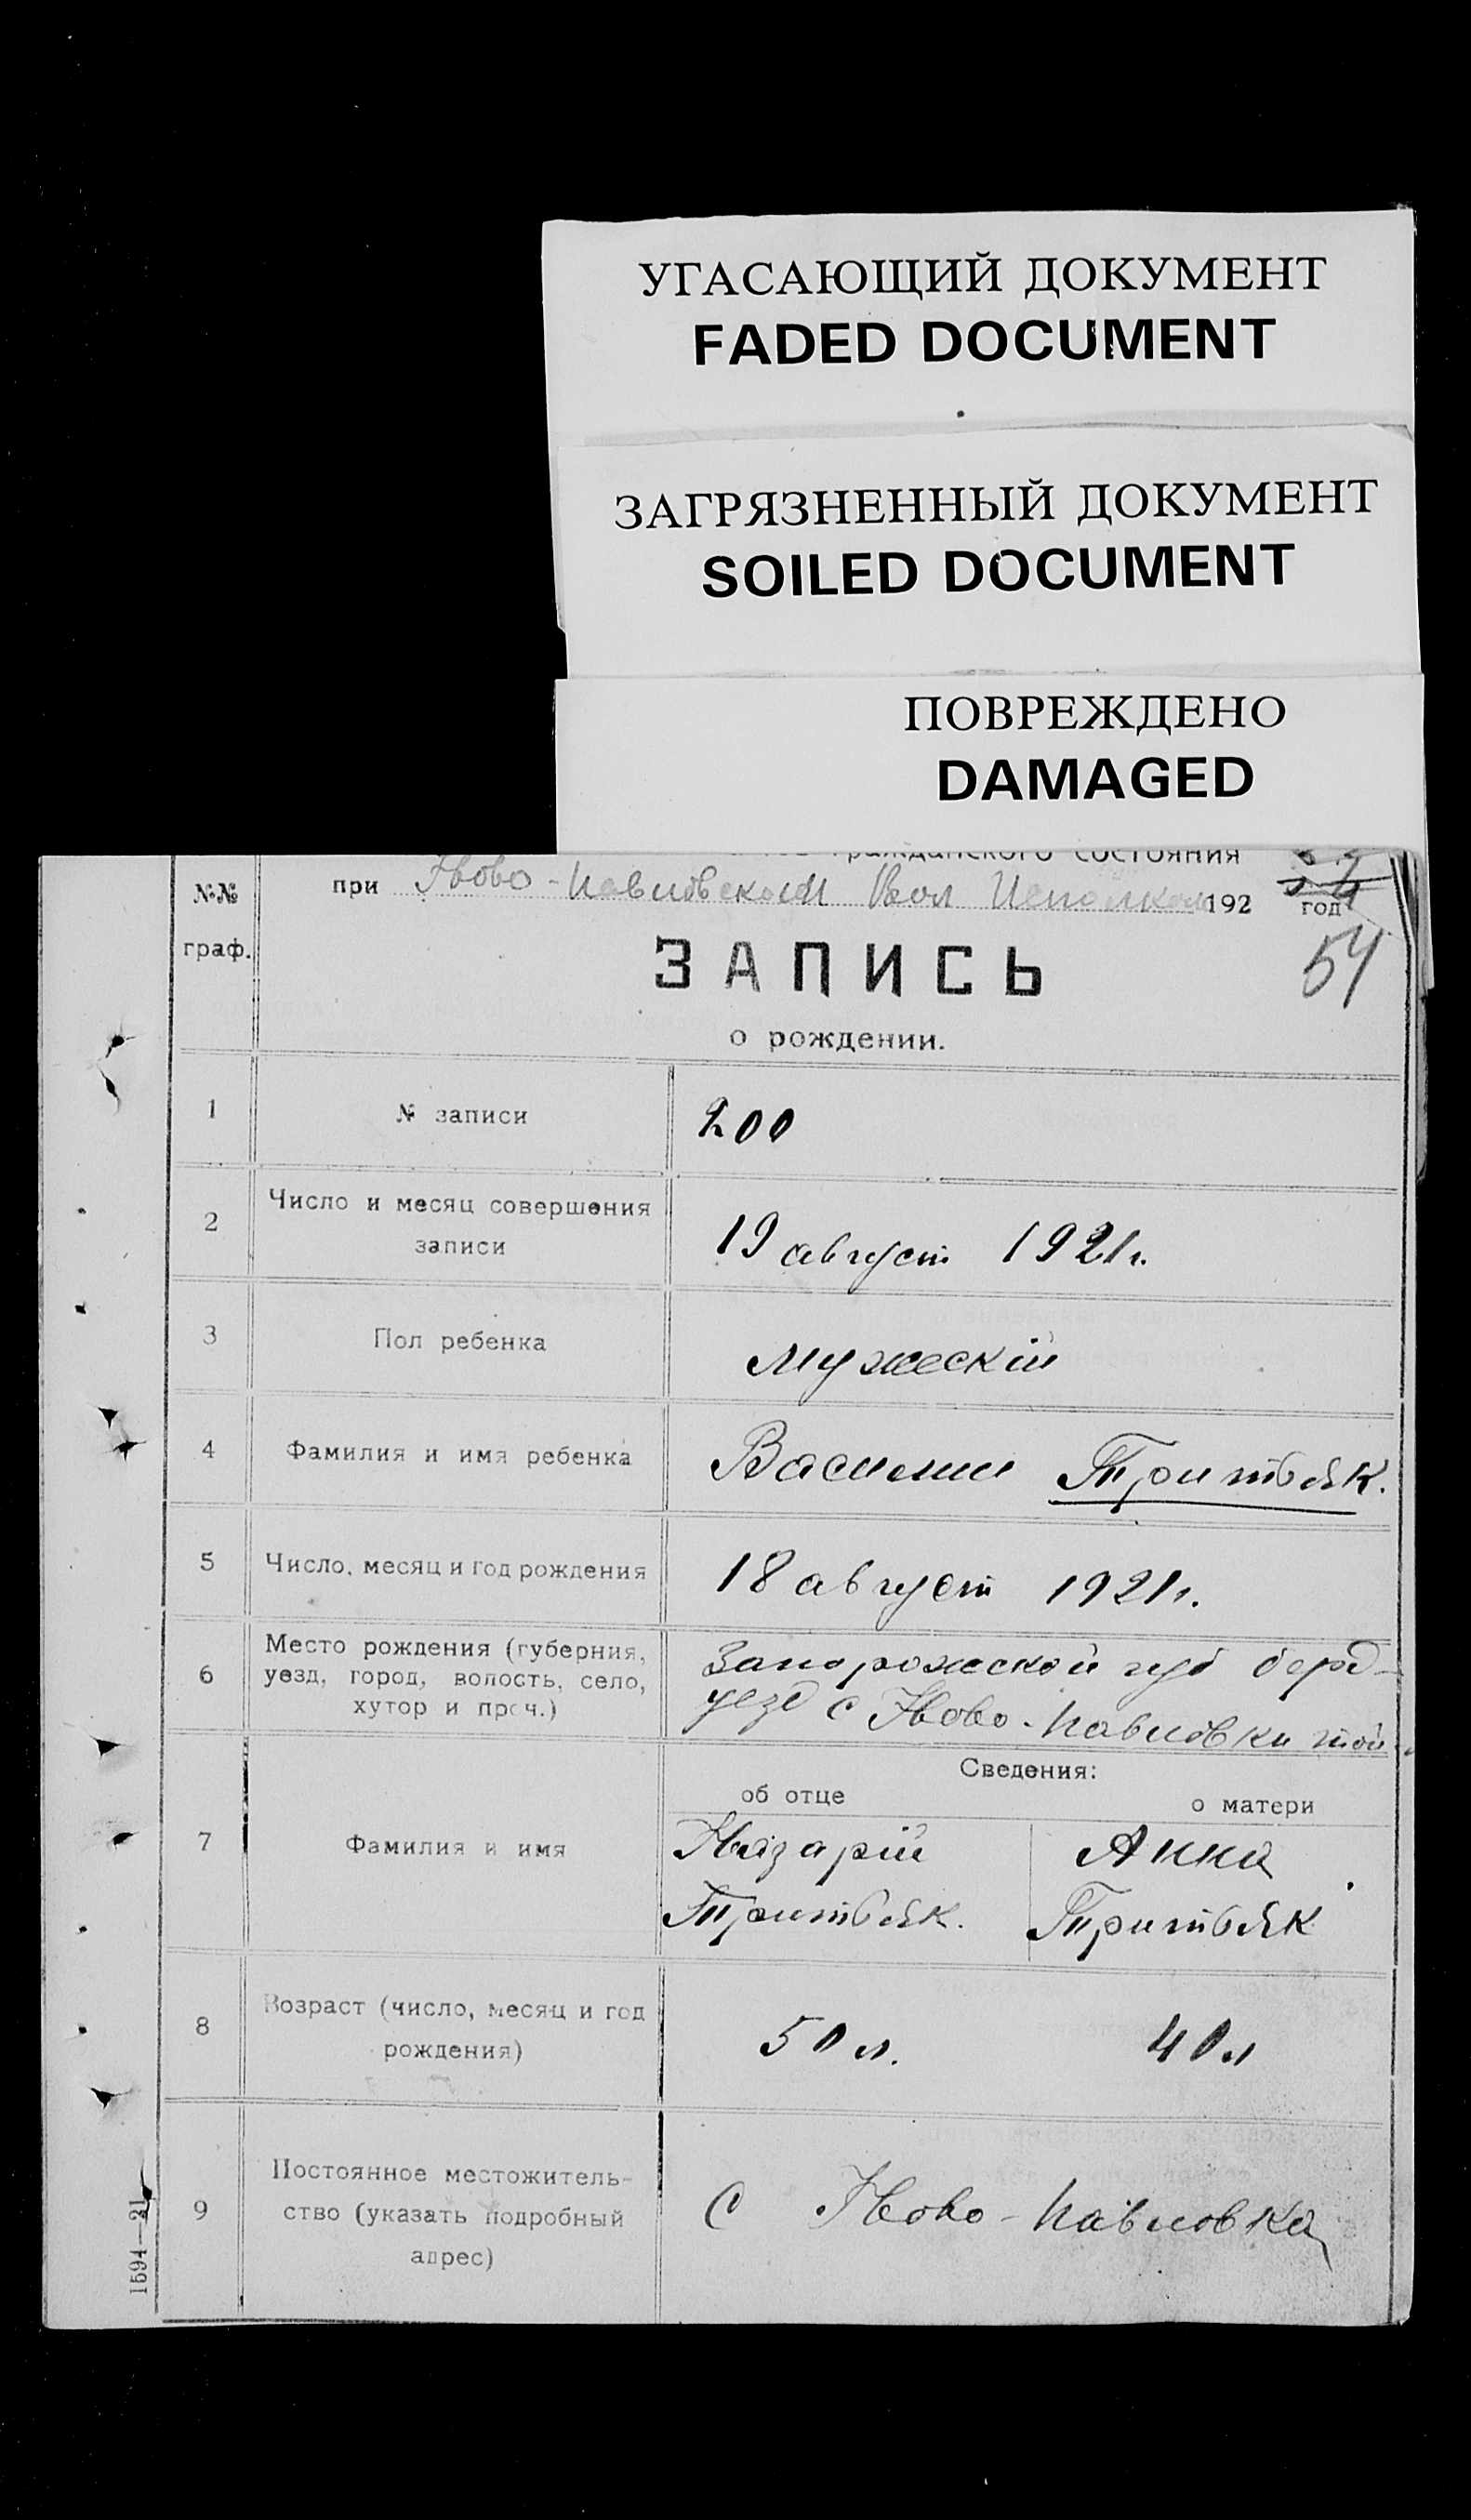 УГАСАЮЩИЙ ДОКУМЕНТ
FADED DOCUMENT
ЗАГРЯЗНЕННЫЙ ДОКУМЕНТ
SOILED DOCUMENT
ПОВРЕЖДЕНО
DAMAGED
гражданского состояния
№№ граф.
при Ново-Павловском Вол Исполком 192 год
54
ЗАПИСЬ
о рождении.
1 № записи 200
2 Число и месяц совершения
записи 19 август 1921 г.
3 Пол ребенка мужескій
4 Фамилия и имя ребенка Василии Тритьяк.
5 Число, месяц и год рождения 18 август 1921 г.
6 Место рождения (губерния,
уезд, город, волость, село,
хутор и проч.)
Запорожской губ берд-
уезд с Ново-Павловки той
Сведения:
об отце о матери
7 Фамилия и имя
Назарій Анна
Тритьяк. Тритьяк
8 Возраст (число, месяц и год
рождения) 50 л. 40 л
9 Постоянное местожитель-
ство (указать подробный
адрес)
с Ново-Павловка
1594—21